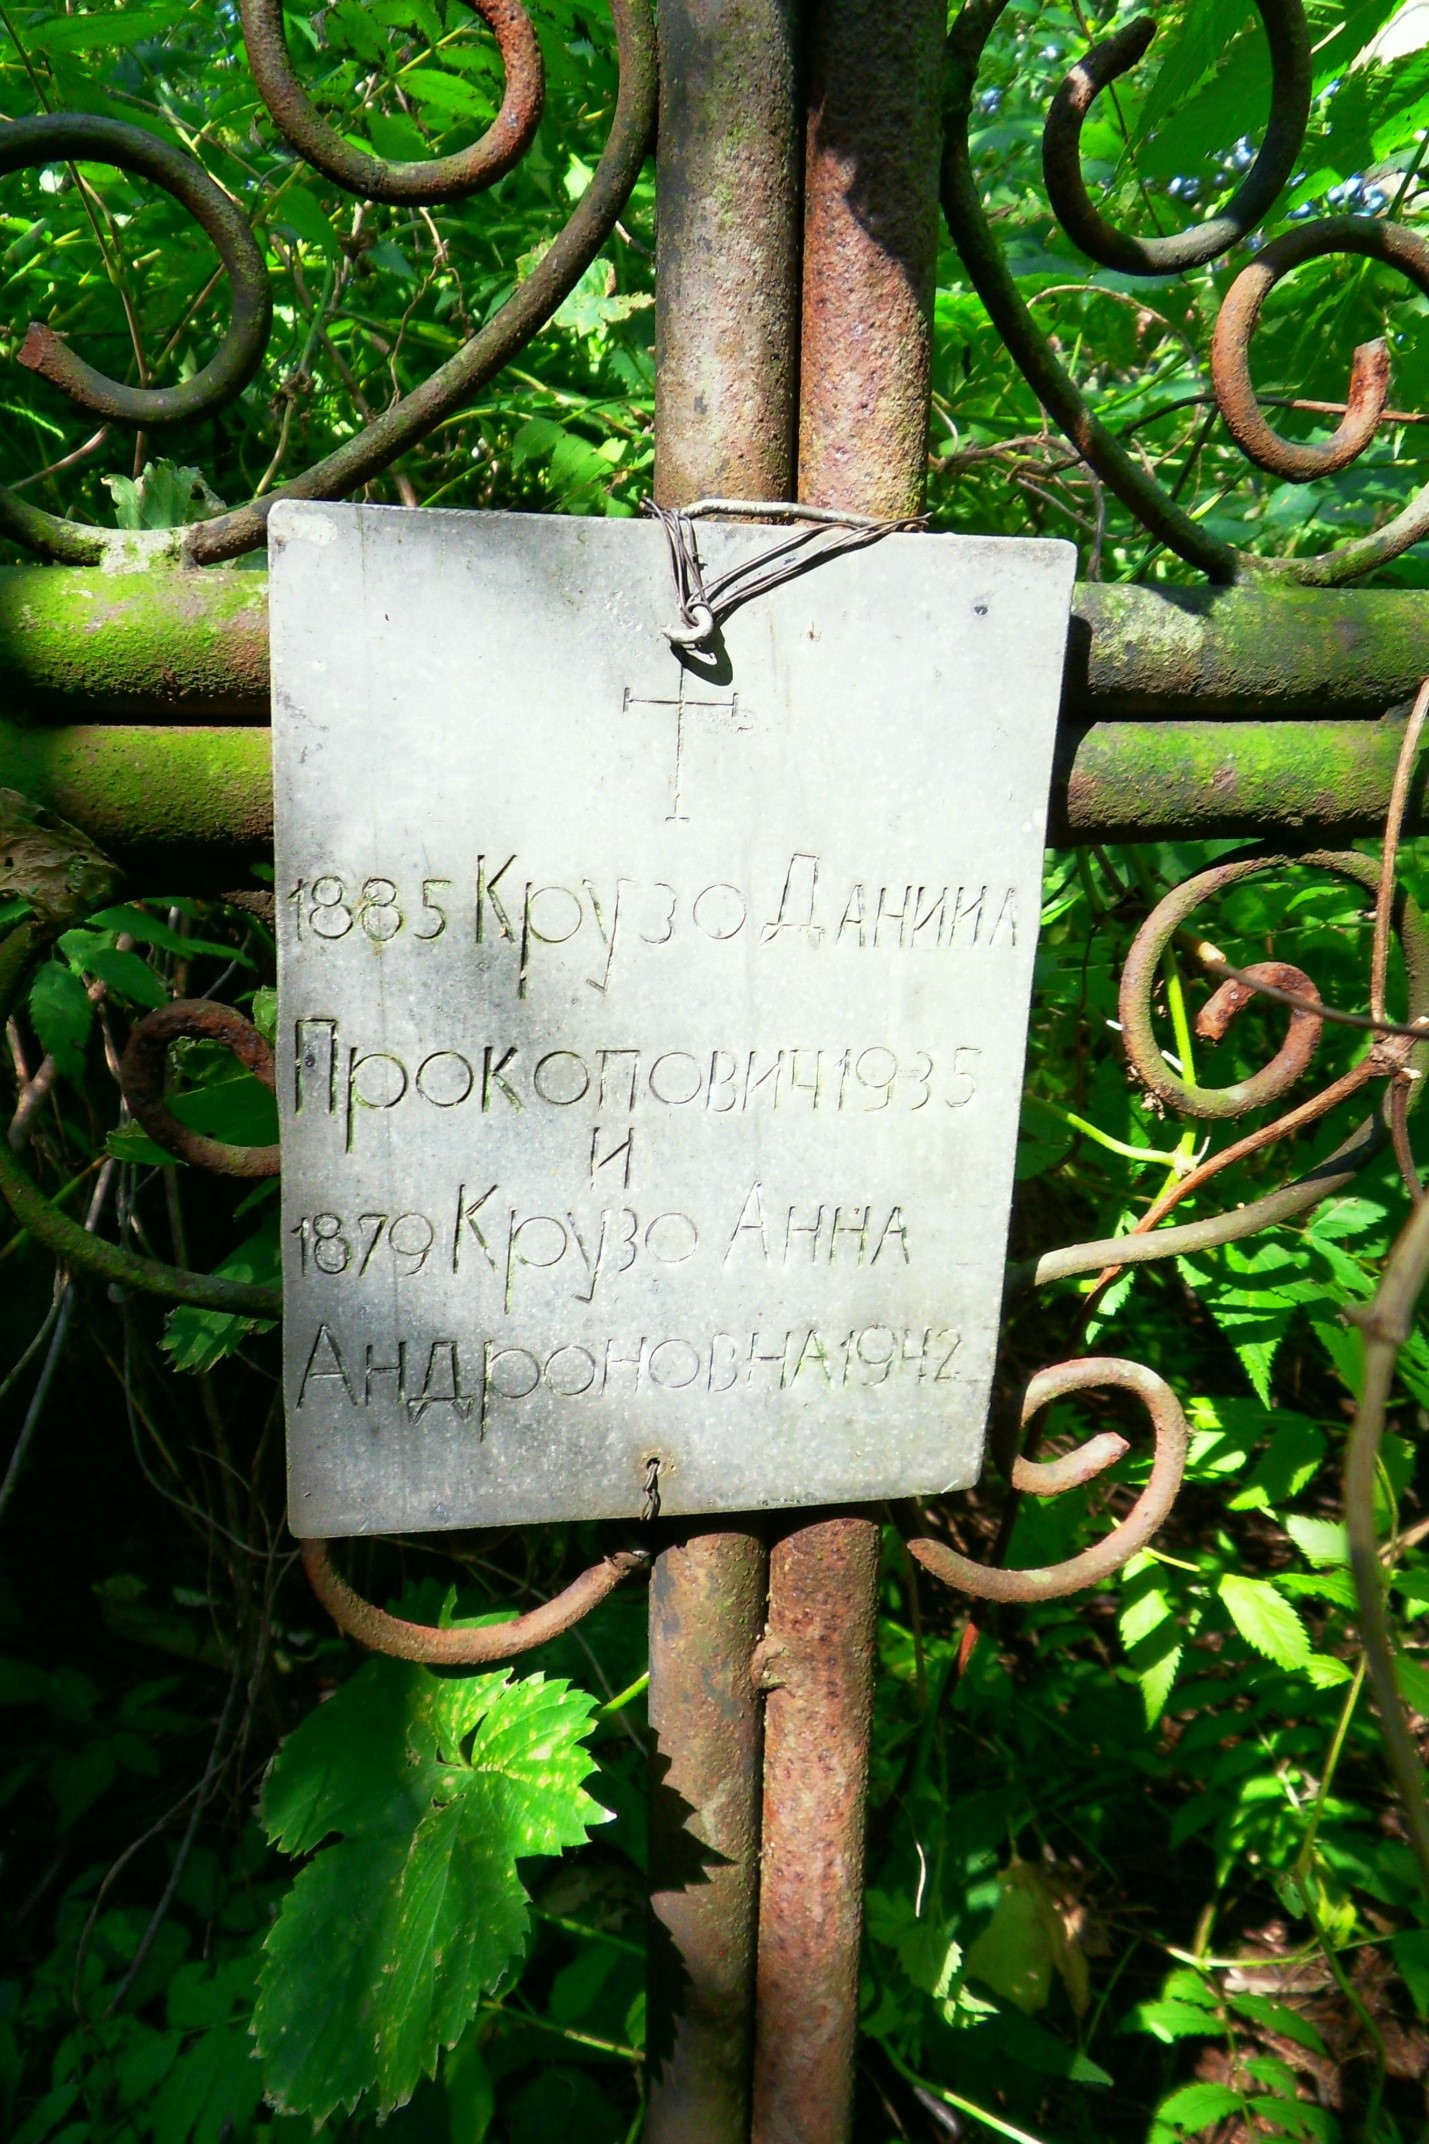 1885 Крузо Даниил
Прокопович 1935
и
1879 Крузо Анна
Андроновна 1942